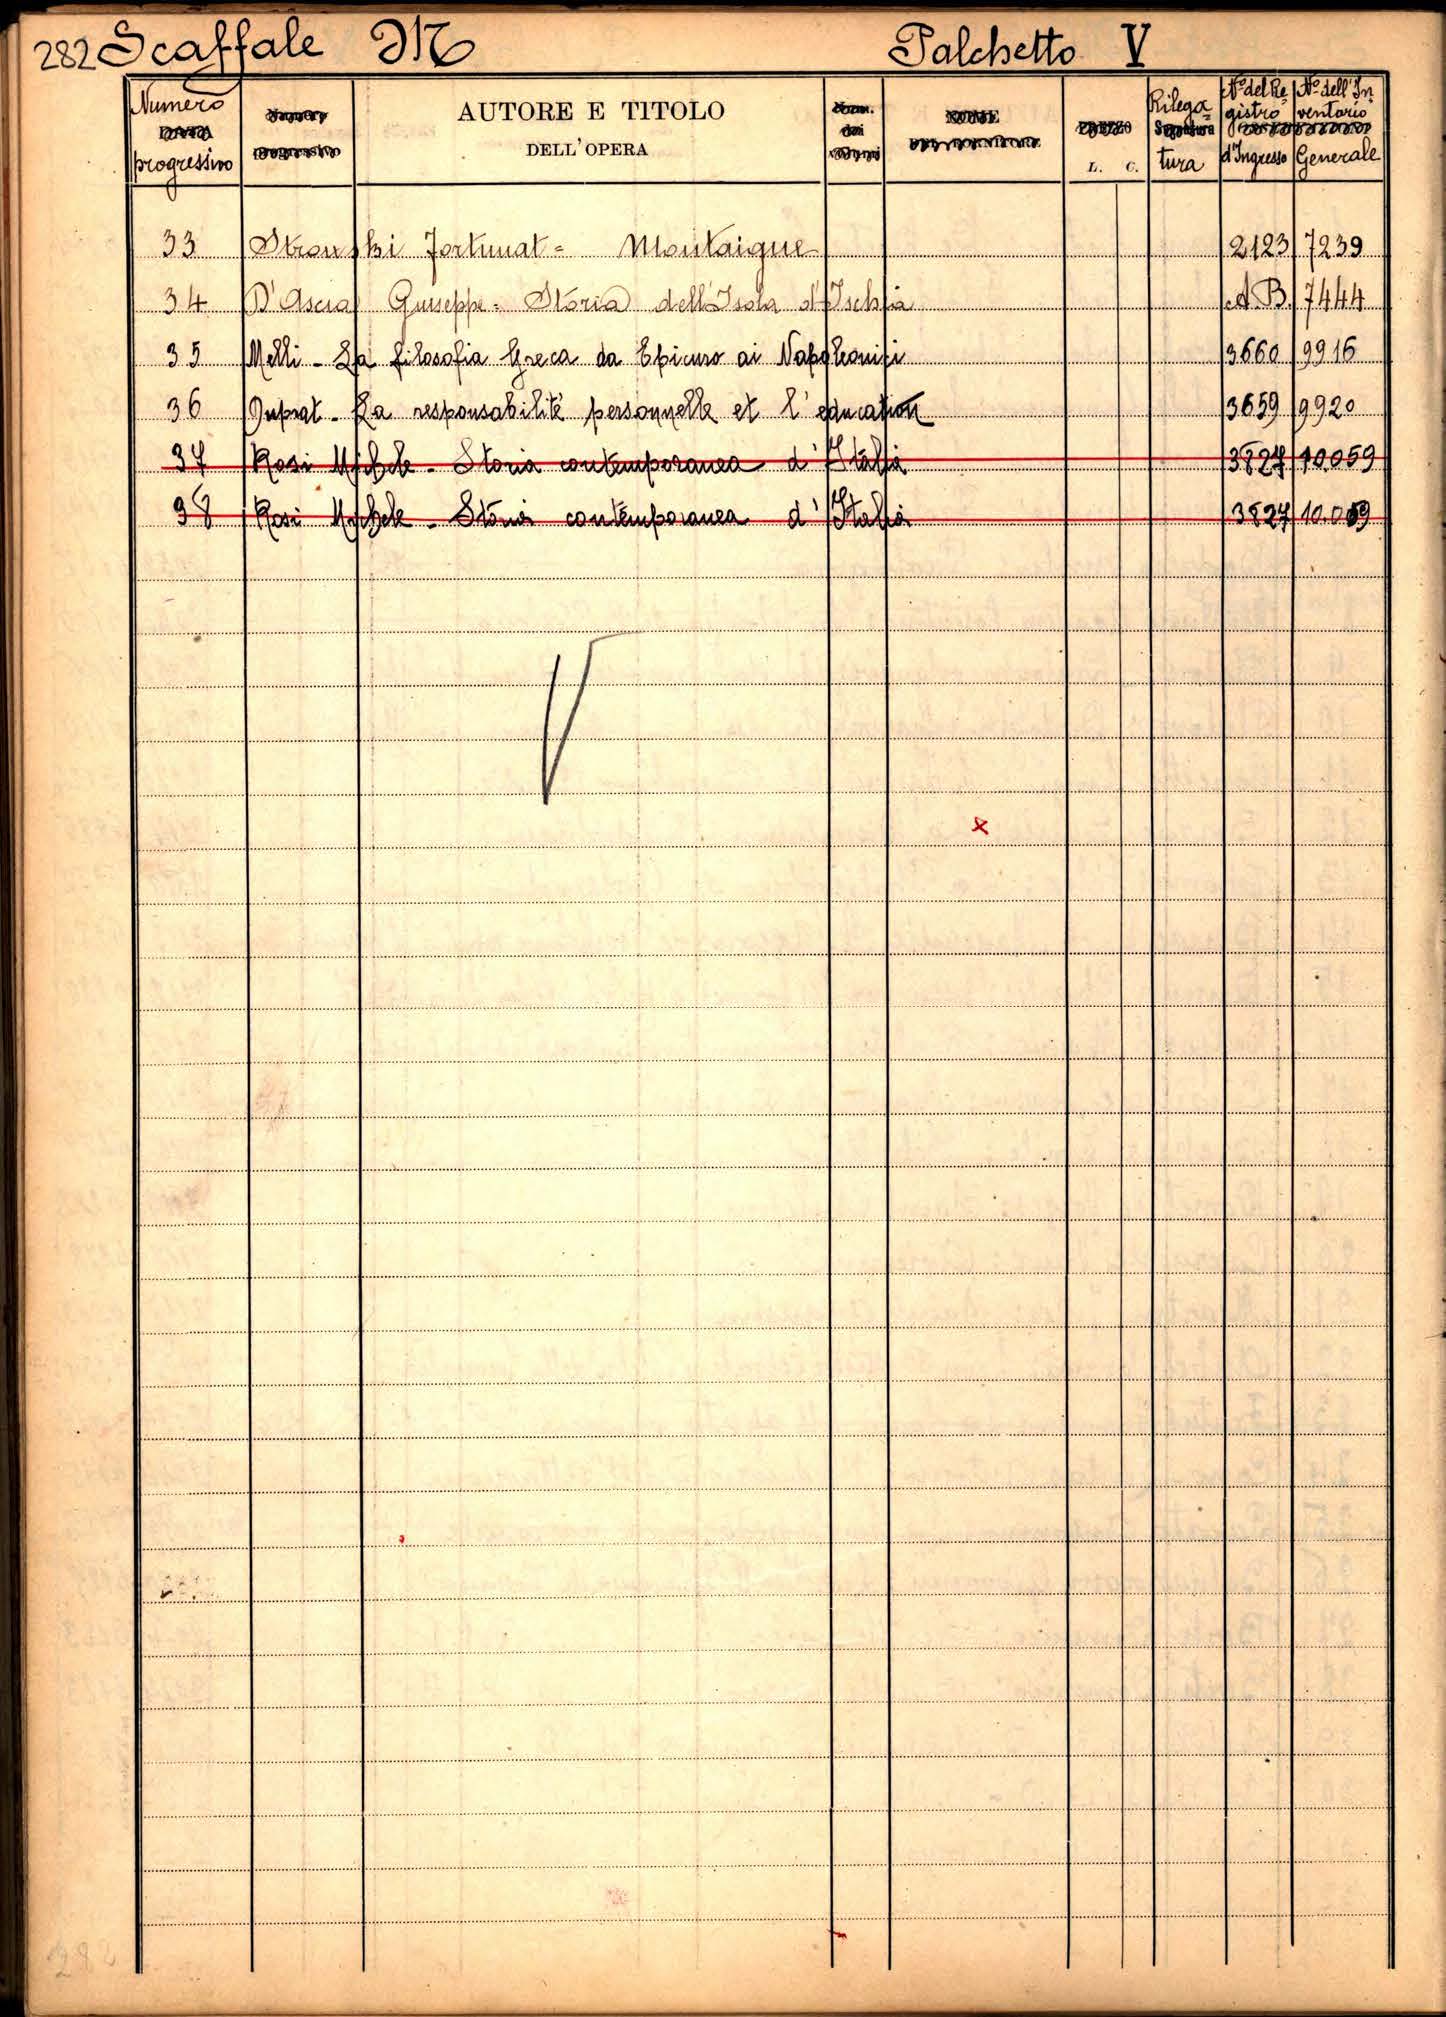 282 Scaffale M Palchetto V
Numero progressivo AUTORE E TITOLO DELL'OPERA L. C. Rilega=tura Nº del Registro d'Ingresso Nº dell'Inventario Generale
33 Strowski Fortunat = Montaigne 2123 7239
34 D'Ascia Giuseppe = Storia dell'Isola d'Ischia A.B. 7444
35 Melli - La filosofia Greca da Epicuro ai 3660 9916
36 Duprat - La responsabilité personnelle et l'education 3659 9920
37 Rosi Michele - Storia contemporanea d'Italia 3827 10059
38 Rosi Michele - Storia contemporanea d'Italia 3827 10.059